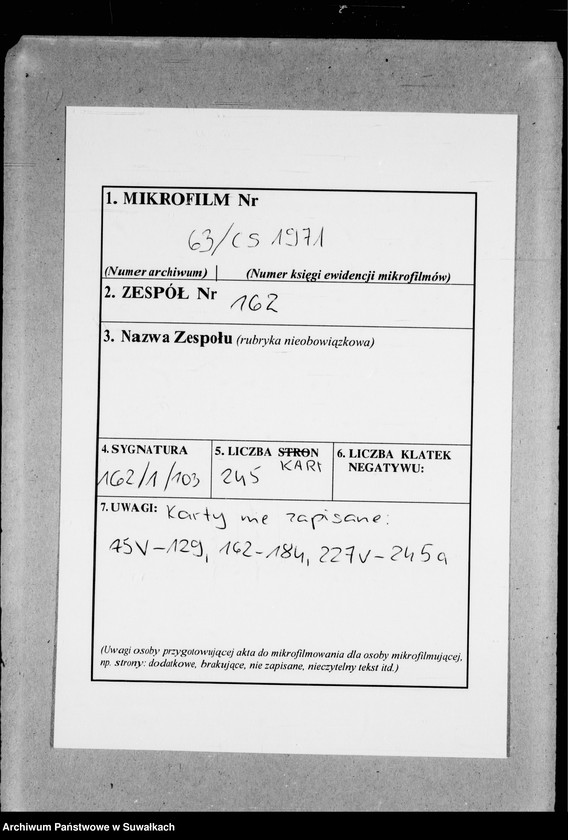 1. MIKROFILM Nr
63/CS 1971
(Numer archiwum) (Numer księgi ewidencji mikrofilmów)
2. ZESPÓŁ Nr 162
3. Nazwa Zespołu (rubryka nieobowiązkowa)
4. SYGNATURA
162/1/103
5. LICZBA STRON
245 KART
6. LICZBA KLATEK
NEGATYWU:
7. UWAGI: Karty nie zapisane:
75V-129, 162-184, 227V-245a
(Uwagi osoby przygotowującej akta do mikrofilmowania dla osoby mikrofilmującej,
np. strony: dodatkowe, brakujące, nie zapisane, nieczytelny tekst itd.)
Archiwum Państwowe w Suwałkach